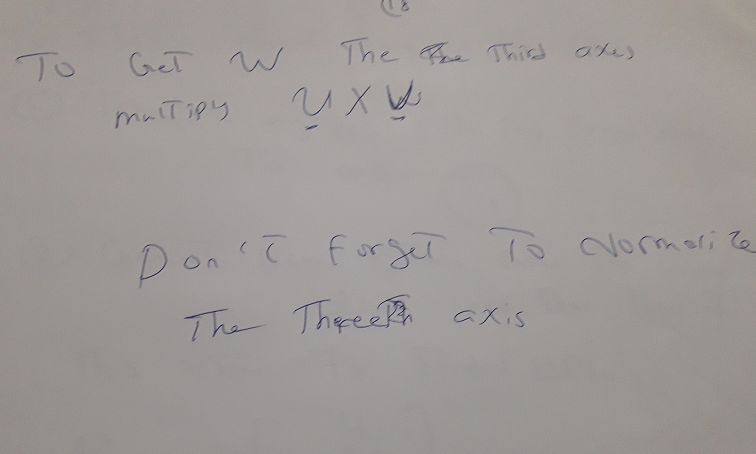 To Get W The The Third axes
multiply U X V
Don't forget To Normalize
The Three axis